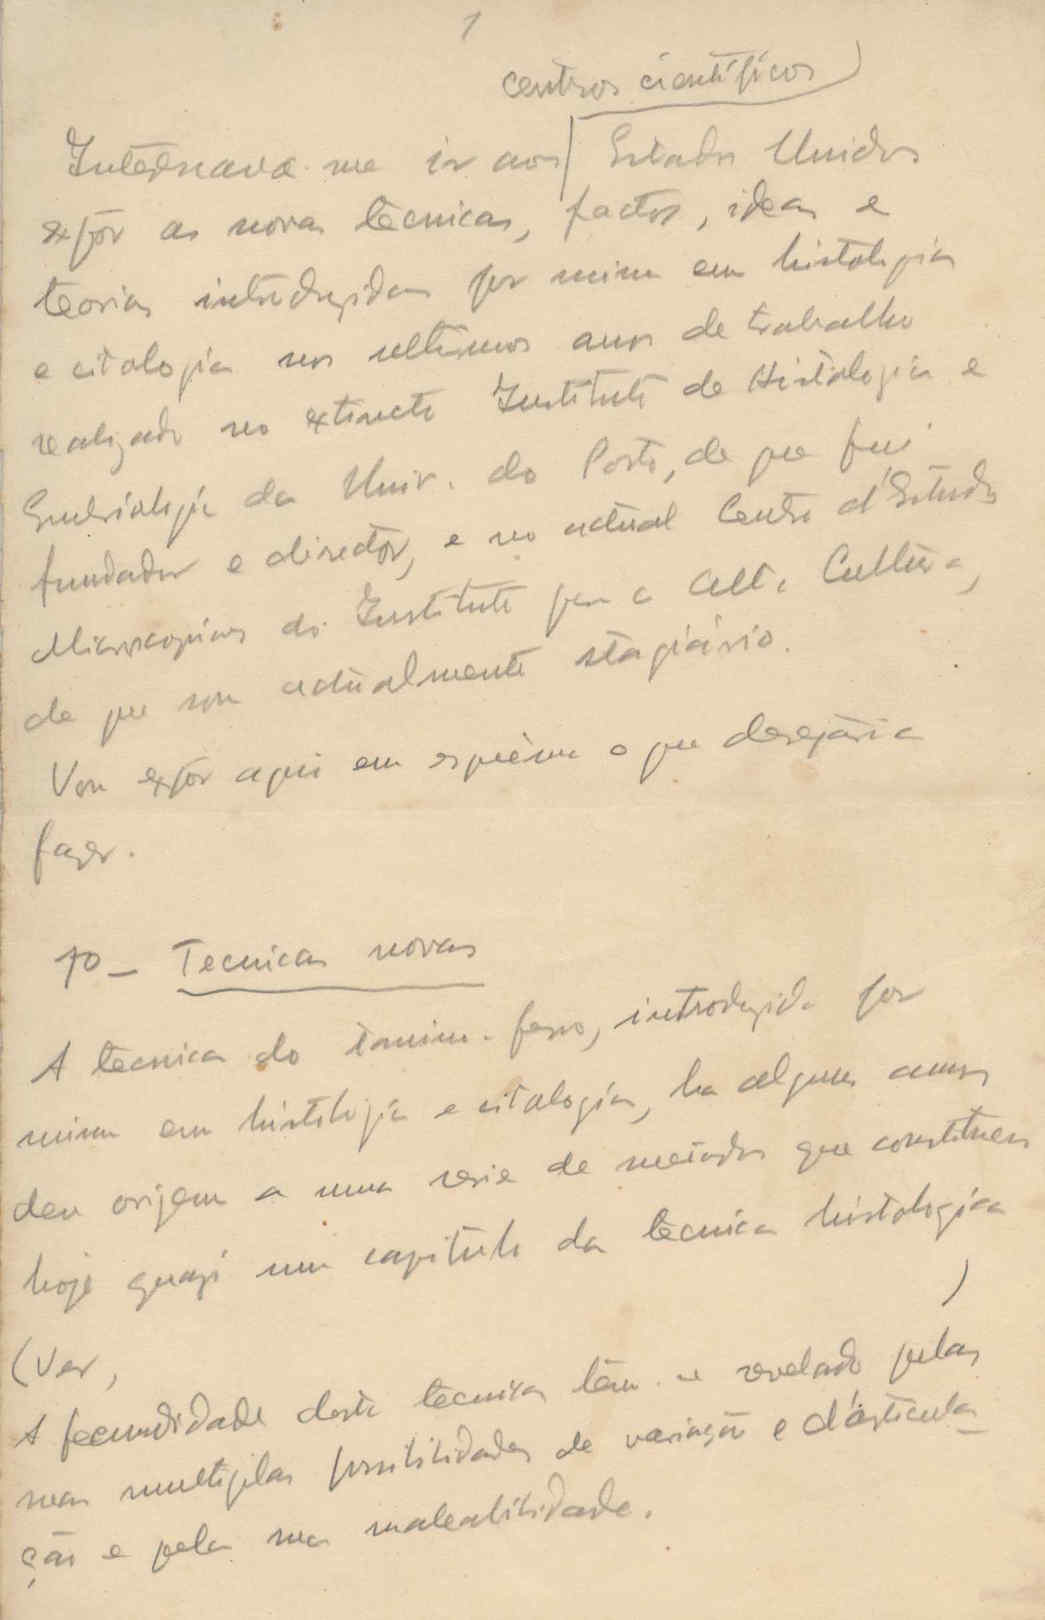 1
centros científicos
Interessava-me ir aos Estados Unidos
expôr as novas técnicas, factos, ideas e
teorias introduzidas por mim em histologia
e citologia nos ultimos anos de trabalho
realizado no extincto Instituto de Histologia e
Embriologia da Univ. do Porto, de que fui
fundador e director, e no actual Centro d'Estudos
Microscopicos do Instituto para a Alta Cultura,
de que sou actualmente stagiário.
Vou expôr aqui em esquêma o que desejaria
fazer.
1º — Tecnicas novas
A técnica do tanino-ferro, introduzida por
mim em histologia e citologia, ha alguns annos
deu origem a uma serie de metodos que constituem
hoje quazi um capitulo da técnica histologica
(Ver, )
A fecundidade desta técnica têm-se revelado pelas
suas multiplas possibilidades de variação e d'articula-
ção e pela sua maleabilidade.